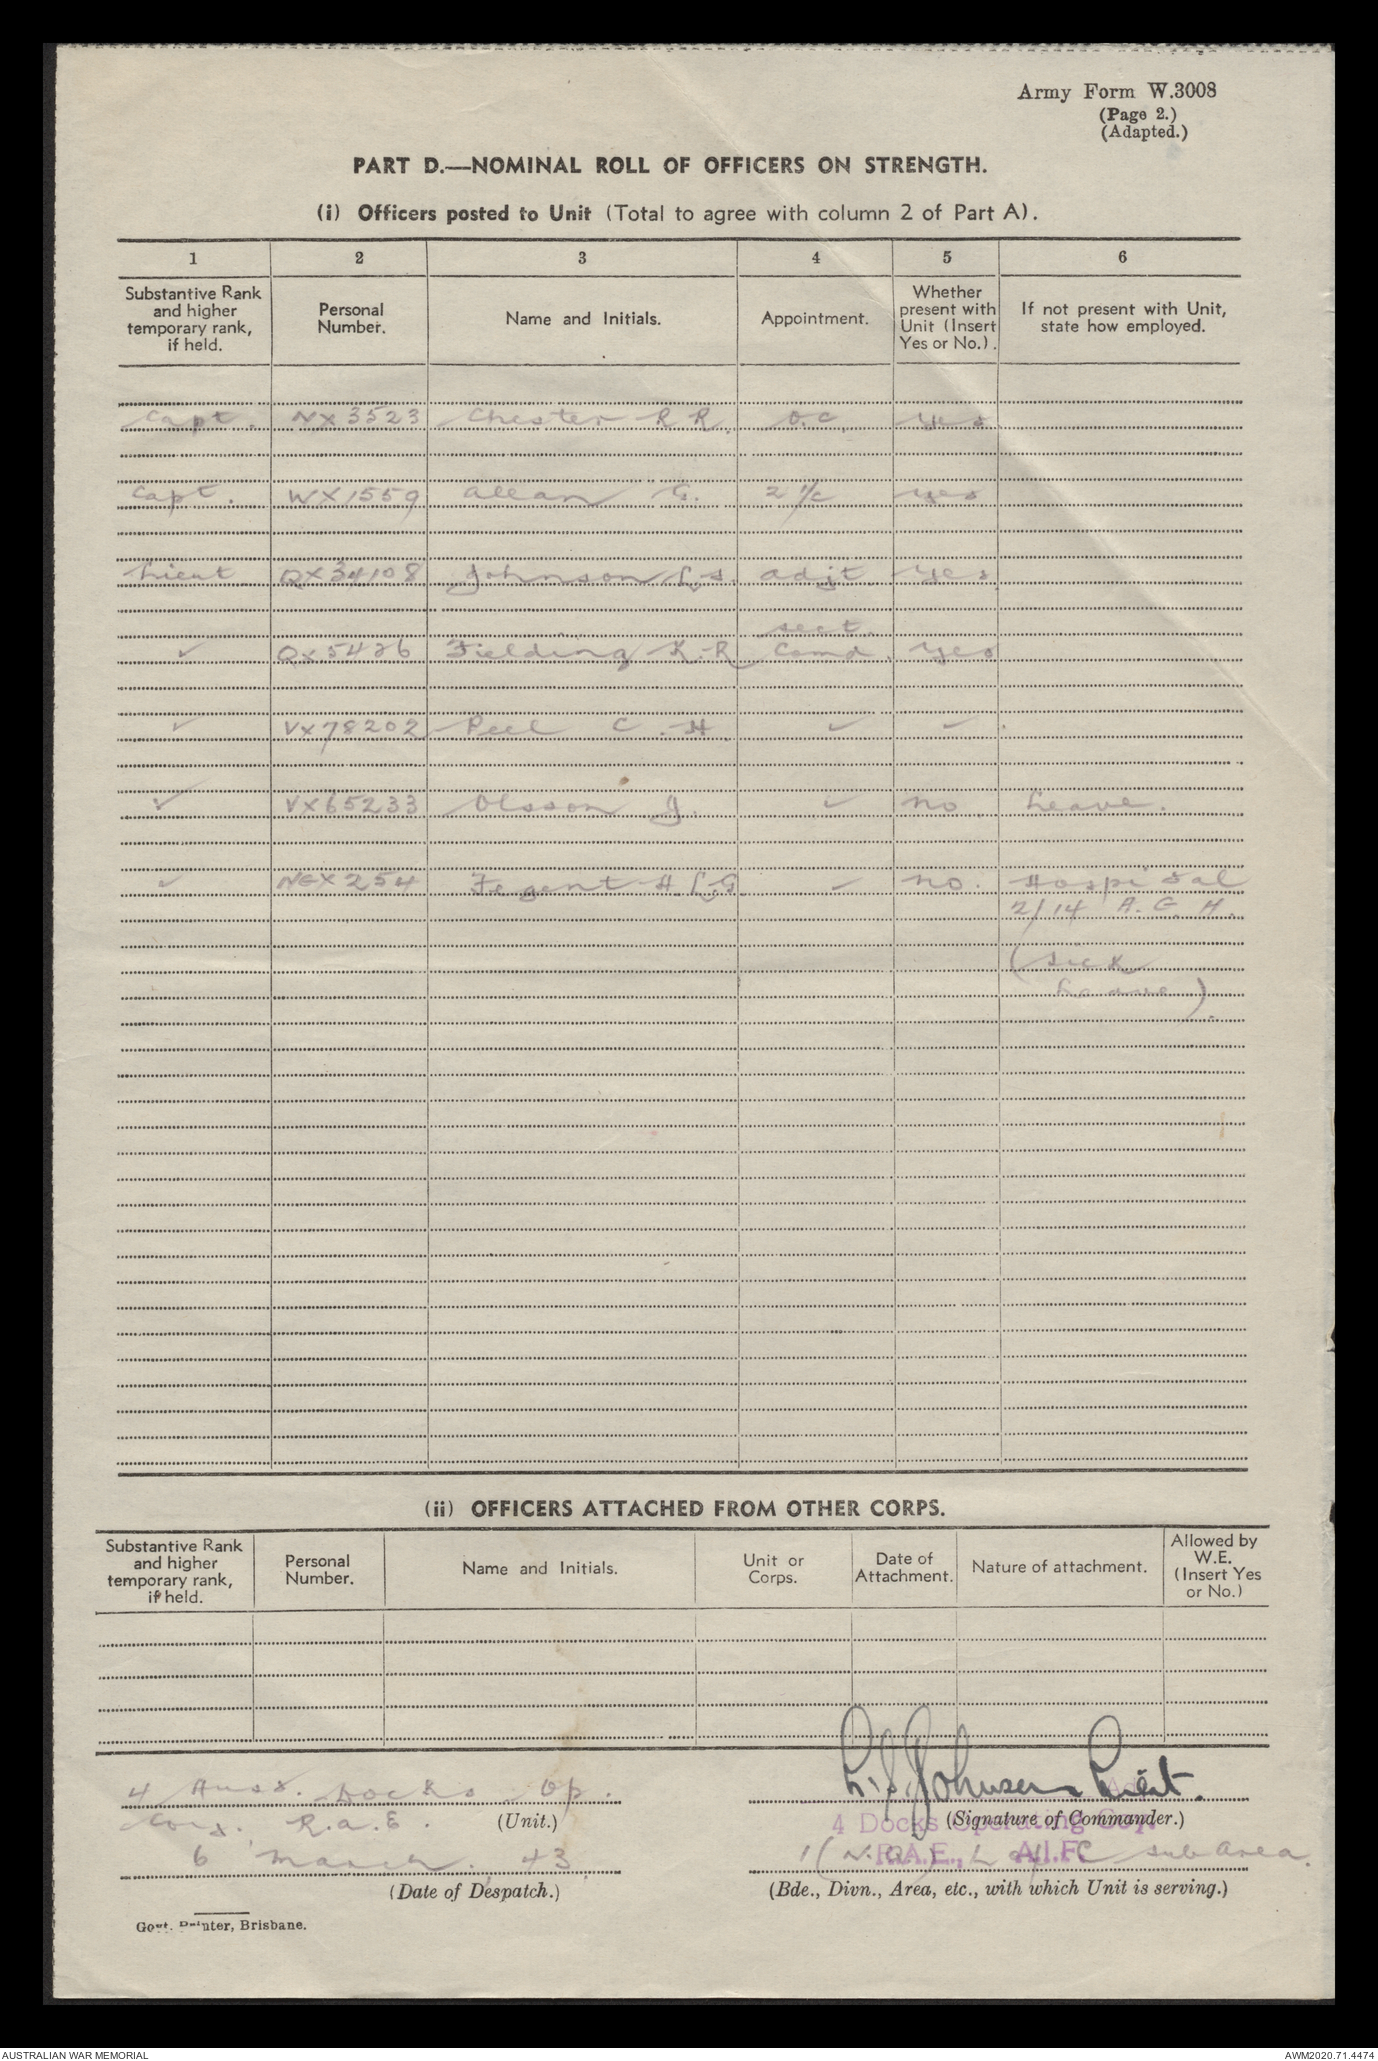 Army Form W.3008
(Page 2.)
(Adapted.)
PART D.—NOMINAL ROLL OF OFFICERS ON STRENGTH.
(i) Officers posted to Unit (Total to agree with column 2 of Part A).
1 2 3 4 5 6
Substantive Rank and higher temporary rank, if held. Personal Number. Name and Initials. Appointment. Whether present with Unit (Insert Yes or No.). If not present with Unit, state how employed.
Capt. NX3523 Chester R R. O.C. yes
Capt. WX1559 Allan G. 2 i/c yes
Lieut. QX34108 Johnson L.J. adjt. yes
sect.
✓ QX5426 Fielding K.R Comd. yes
✓ VX78202 Peel C.H. ✓ ✓
✓ VX65233 Olsson J. ✓ no Leave.
✓ NGX254 Fegent H.L.G. ✓ no. Hospital
2/14 A.G.H.
(sick
Leave).
(ii) OFFICERS ATTACHED FROM OTHER CORPS.
Substantive Rank and higher temporary rank, if held. Personal Number. Name and Initials. Unit or Corps. Date of Attachment. Nature of attachment. Allowed by W.E. (Insert Yes or No.)
4 Aust. Docks Op.
Coy. R.A.E.
(Unit.)
6 March. 43
(Date of Despatch.)
L.J. Johnson Lieut.
(Signature of Commander.)
4 Docks Operating Coy.
R.A.E., A.I.F.
1 (N.Q.) L of C sub area.
(Bde., Divn., Area, etc., with which Unit is serving.)
Govt. Printer, Brisbane.
AUSTRALIAN WAR MEMORIAL
AWM2020.71.4474